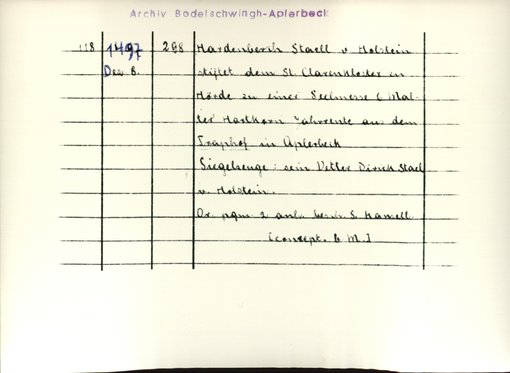 Archiv Bodelschwingh-Aplerbeck
118 1497 298 Hardenberch Staell v. Holstein
Dez 8. stiftet dem St. Clarenkloster in
Hörde zu einer Seelmesse 6 Mal-
ter Hartkorn Jahrrente aus dem
Traphof in Aplerbeck
Siegelzeuge: sein Vetter Dirick Stael
v. Holstein.
Or. pgm. 2 anh.